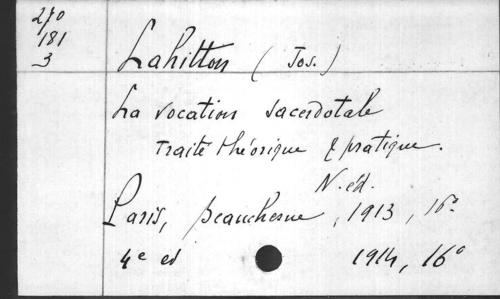 270
181
3
Lahitton (Jos.)
La vocation sacerdotale
Traité théorique & pratique.
N. éd.
Paris, Beauchesne, 1913, 16°
4e ed 1914, 16°